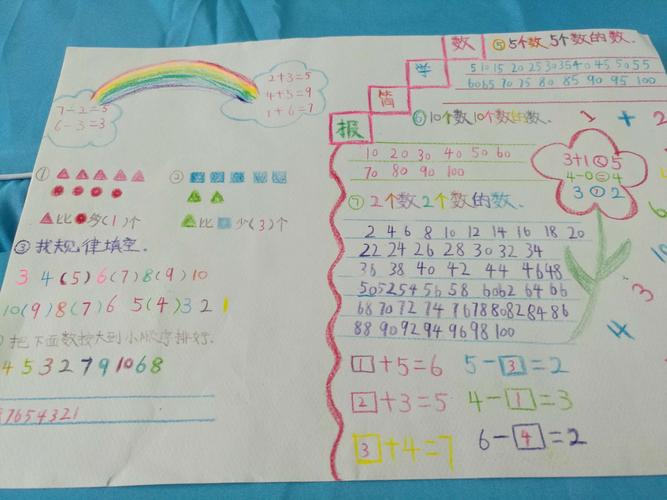 7-2=5
6-3=3
2+3=5
4+5=9
1+6=7
① ②
比 多(1)个
比 少(3)个
③找规律填空.
3 4 (5) 6 (7) 8 (9) 10
10 (9) 8 (7) 6 5 (4) 3 2 1
把下面数按大到小顺序排好.
4 5 3 2 7 9 10 6 8
7654321
数
学
简
报
⑤5个数5个数的数.
5 10 15 20 25 30 35 40 45 50 55
60 65 70 75 80 85 90 95 100
⑥10个数10个数的数.
10 20 30 40 50 60
70 80 90 100
⑦2个数2个数的数.
2 4 6 8 10 12 14 16 18 20
22 24 26 28 30 32 34
36 38 40 42 44 46 48
50 52 54 56 58 60 62 64 66
68 70 72 74 76 78 80 82 84 86
88 90 92 94 96 98 100
1+5=6
5-3=2
2+3=5
4-1=3
3+4=7
6-4=2
1 + 2
3+1<5
4-0=4
3>2
3
4